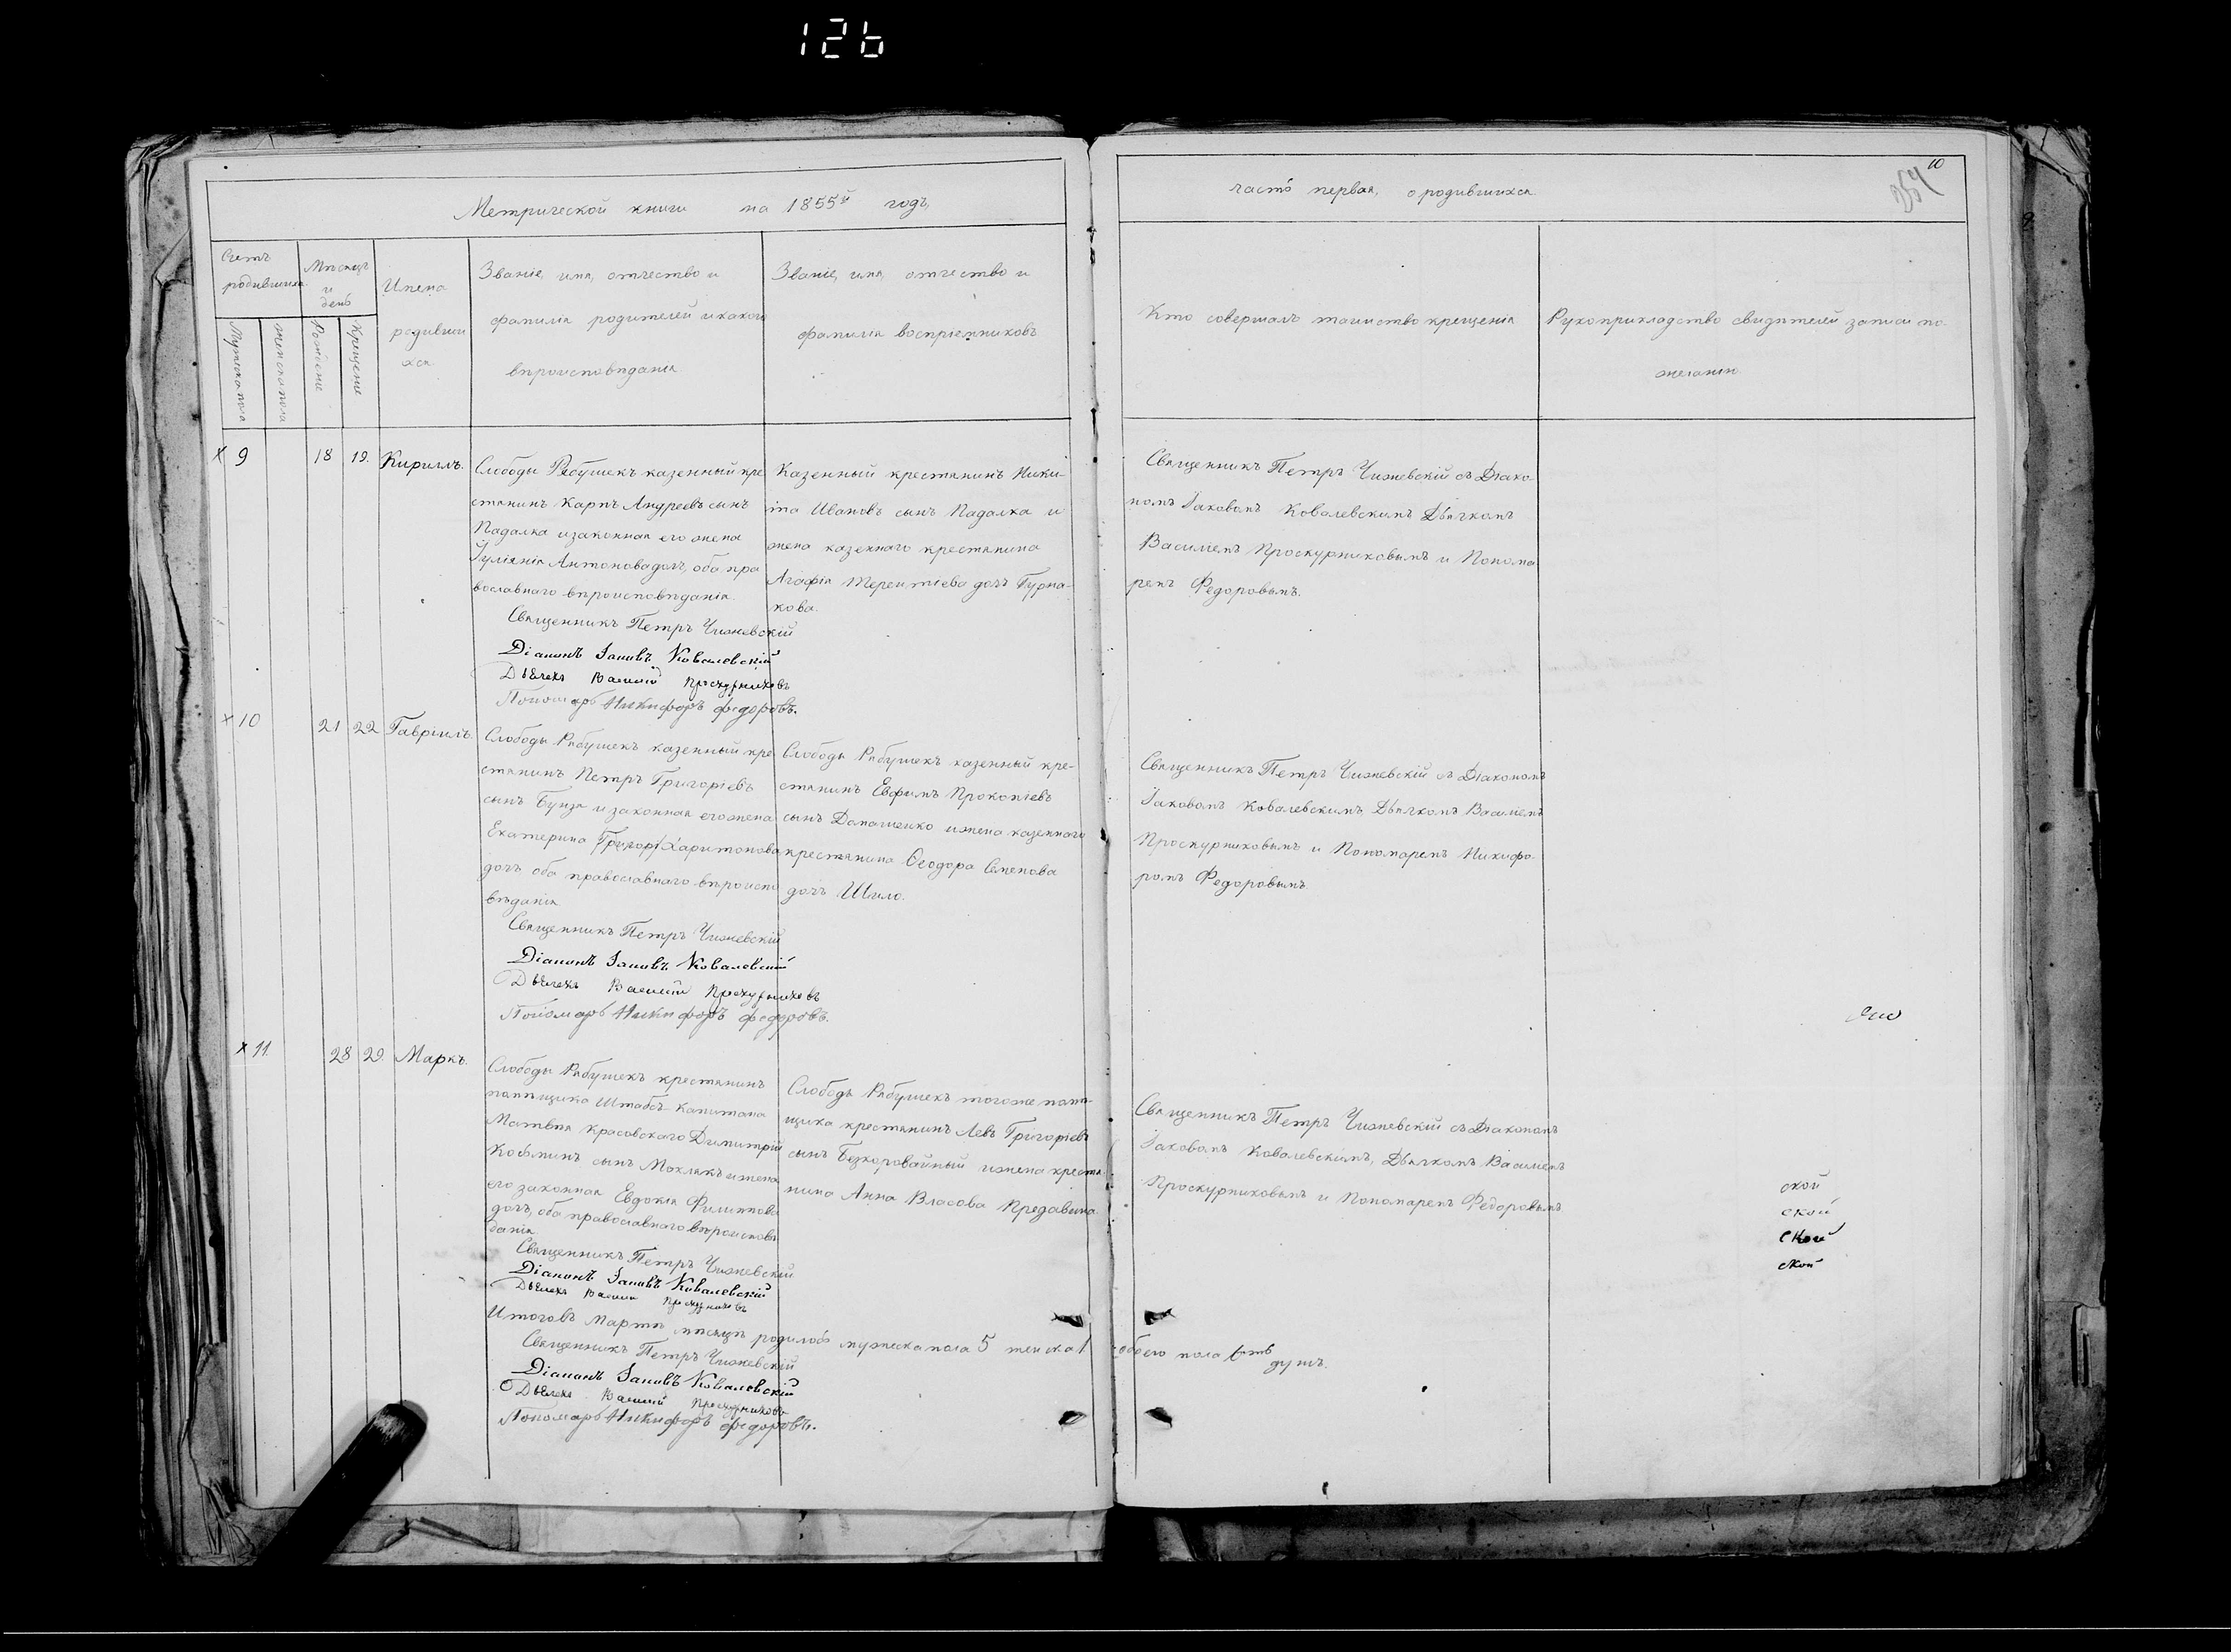 126
Метрической книги на 1855й годъ,
Счетъ родившихся
Мѣсяцъ и день
Имена родившихся
Званіе, имя, отчество и фамилія родителей и какого вѣроисповѣданія
Званіе, имя, отчество и фамилія воспріемниковъ
Мужеска пола
женска пола
Рожденіе
Крещеніе
часть первая, о родившихся
10
Кто совершалъ таинство крещенія
Рукоприкладство свидѣтелей записи по желанію
х 9
18
19.
Кириллъ.
Слободы Рябушекъ казенный кре
стянинъ Карпъ Андреевъ сынъ
Падалка изаконная его жена
Іуліянія Антоновадочь, оба пра
вославнаго вѣроисповѣданія.
Священникъ Петръ Чижевскій
Діаконъ Іаковъ Ковалевскій
Дьячекъ Василій Проскурниковъ
Пономарь Никифоръ Федоровъ.
Казенный крестянинъ Ники-
та Ивановъ сынъ Падалка и
жена казеннаго крестянина
Агафія Терентіева дочь Бурна-
кова.
Священникъ Петръ Чижевскій съ Діако-
номъ Іаковомъ Ковалевскимъ Дьячкомъ
Василіемъ Проскурниковымъ и Понома
ремъ Федоровымъ.
х 10
21
22
Гавріилъ.
Слободы Рябушекъ казенный кре
стянинъ Петръ Григоріевъ
сынъ Бунза и законная егожена
Екатерина /Григорі/ Харитонова
дочь оба православнаго вѣроиспо
вѣданія
Священникъ Петръ Чижевскій
Діаконъ Іаковъ Ковалевскій
Дьячекъ Василій Проскурниковъ
Пономарь Никифоръ Федоровъ.
Слободы Рябушекъ казенный кре-
стянинъ Евфимъ Прокопіевъ
сынъ Домашенко ижена казеннаго
крестянина Ѳеодора Семенова
дочь Шило.
Священникъ Петръ Чижевскій съ Діакономъ
Іаковомъ Ковалевскимъ, Дьячкомъ Василіемъ
Проскурниковымъ и Пономаремъ Никифо-
ромъ Федоровымъ
х 11.
28
29.
Маркъ.
Слободы Рябушекъ крестянинъ
помѣщика Штабсъ-капитана
Матвѣя Красовскаго Димитрій
Косминъ сынъ Мохлякъ ижена
его законная Евдокія Филиппова
дочь, оба православнаго вѣроисповѣ
данія
Священникъ Петръ Чижевскій
Діаконъ Іаковъ Ковалевскій
Дьячекъ Василій Проскурниковъ
Слободы Рябушекъ тогоже помѣ-
щика крестянинъ Левъ Григоріевъ
сынъ Безкоровайный ижена крестя-
нина Анна Власова Предавина
Священникъ Петръ Чижевскій съ Діакономъ
Іаковомъ Ковалевскимъ, Дьячкомъ Василіемъ
Проскурниковымъ и Пономаремъ Федоровымъ
ской
ской
ской
ской
Итоговъ Мартѣ мѣсяцѣ родилось мужеска пола 5 женска 1 обоего пола шесть душъ.
Священникъ Петръ Чижевскій
Діаконъ Іаковъ Ковалевскій
Дьячекъ Василій Проскурниковъ
Пономарь Никифоръ Федоровъ.